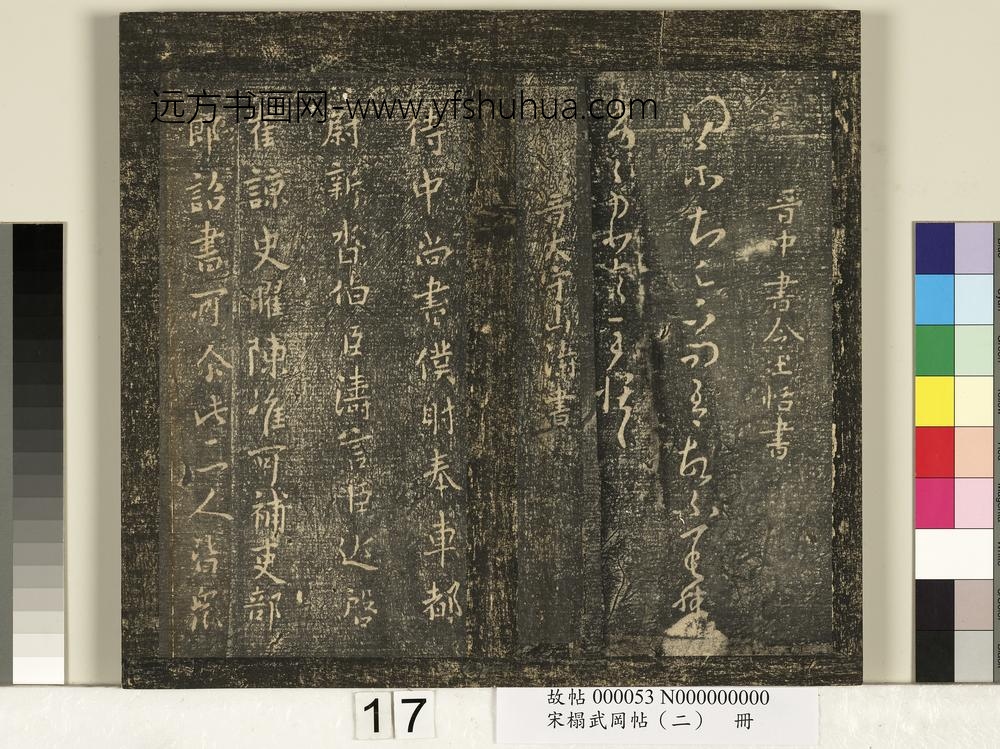 远方书画网-www.yfshuhua.com
晉中書令王恬書
得示知足下問吾故不
晉太守山濤書
侍中尚書僕射奉車都
尉新沓伯臣濤言臣近啓
崔諒史曜陳准可補吏部
郎詔書可尒此三人皆衆
17
故帖 000053 N000000000
宋榻武岡帖（二） 冊